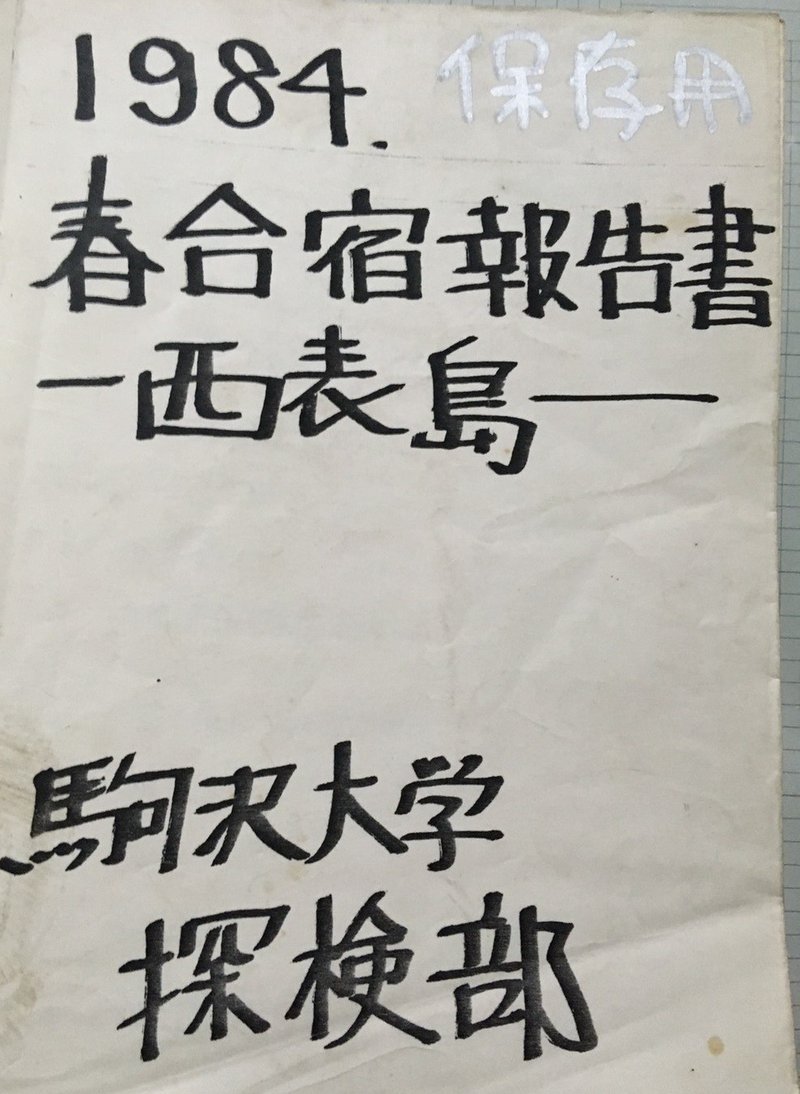 1984. 保存用
春合宿報告書
－西表島――
駒沢大学
探検部